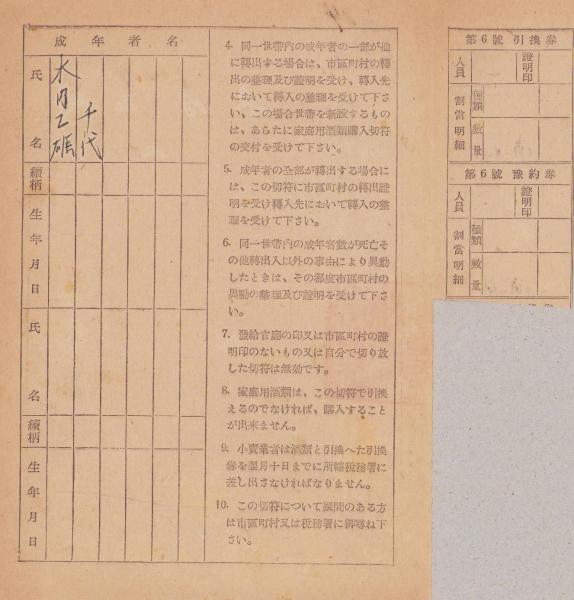 成年者名
氏名
千代
續柄
生年月日
氏名
續柄
生年月日
4. 同一世帶內の成年者の一部が他
に轉出する場合は、市區町村の轉
出の整理及び證明を受け、轉入先
において轉入の整理を受けて下さ
い、この場合世帶を新設するもの
は、あらたに家庭用酒類購入切符
の交付を受けて下さい。
5. 成年者の全部が轉出する場合に
は、この切符に市區町村の轉出證
明を受け轉入先において轉入の整
理を受けて下さい。
6. 同一世帶內の成年者數が死亡そ
の他轉出入以外の事由により異動
したときは、その都度市區町村の
異動の整理及び證明を受けて下さ
い。
7. 發給官廳の印又は市區町村の證
明印のないもの又は自分で切り放
した切符は無効です。
8. 家庭用酒類は、この切符で引換
えるのでなければ、購入すること
が出來ません。
9. 小賣業者は酒類と引換へた引換
券を翌月十日までに所轄稅務署に
差し出さなければなりません。
10. この切符について疑問のある方
は市區町村又は稅務署に御尋ね下
さい。
第6號引換券
人員
證明印
割當明細
種類
數量
第6號豫約券
人員
證明印
割當明細
種類
數量